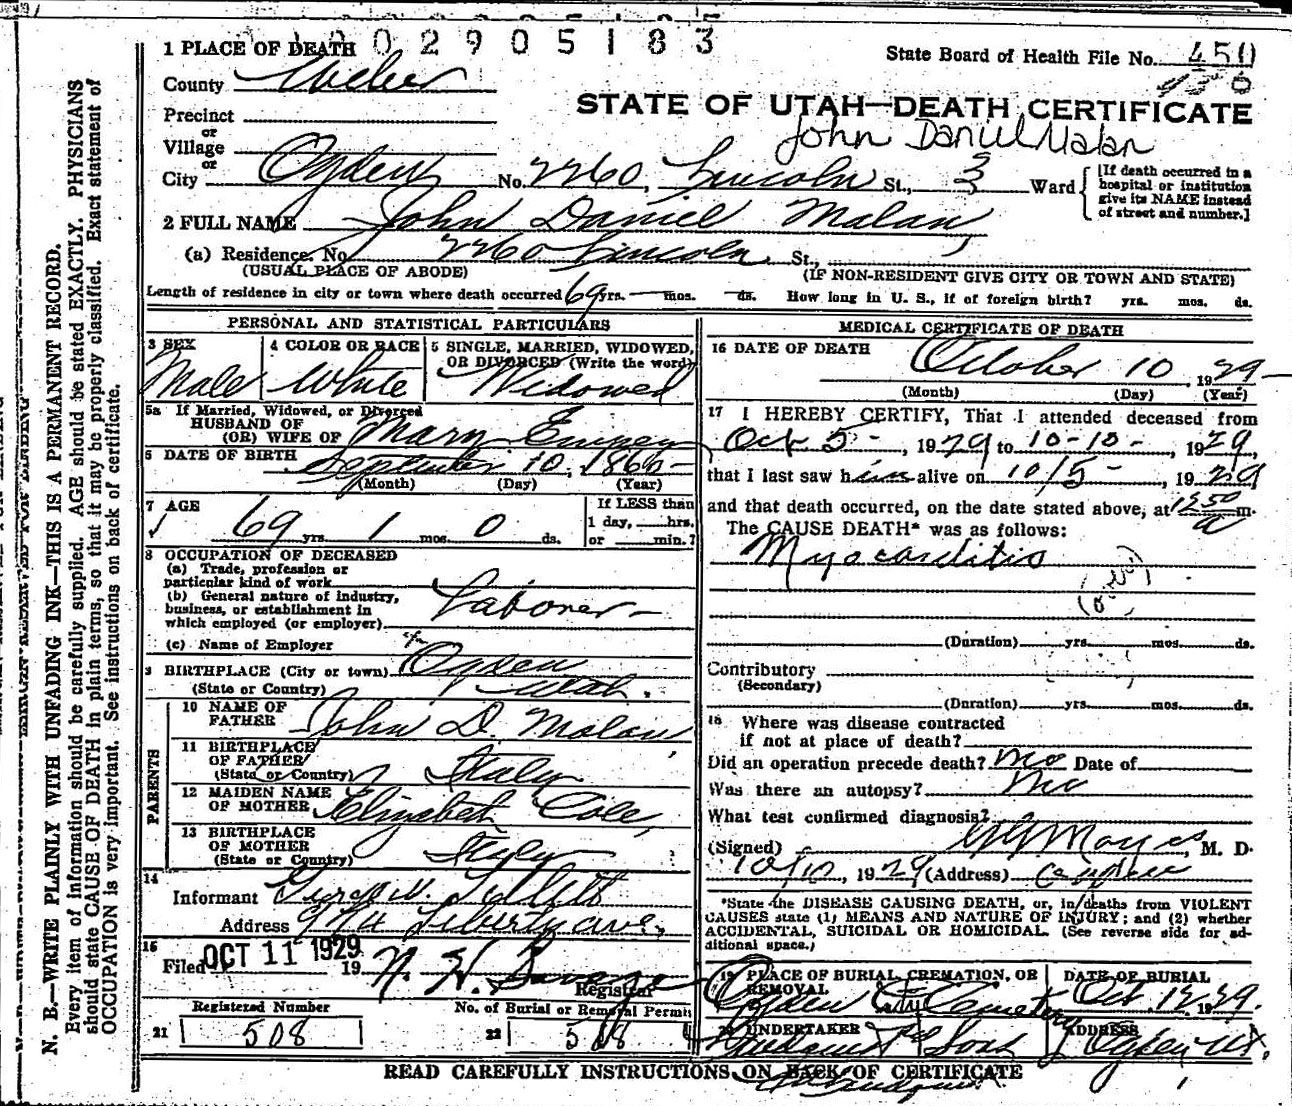 0 0 2 9 0 5 1 8 3
1 PLACE OF DEATH
State Board of Health File No. 450
County Weber
450
STATE OF UTAH—DEATH CERTIFICATE
Precinct
or
John Daniel Malan
Village
or
City Ogden No. 2260, Lincoln St., 3 Ward
[If death occurred in a hospital or institution give its NAME instead of street and number.]
2 FULL NAME John Daniel Malan,
(a) Residence. No. 2260 Lincoln St.,
(USUAL PLACE OF ABODE) (IF NON-RESIDENT GIVE CITY OR TOWN AND STATE)
Length of residence in city or town where death occurred 69 yrs. — mos. ds. How long in U. S., if of foreign birth? yrs. mos. ds.
PERSONAL AND STATISTICAL PARTICULARS
3 SEX 4 COLOR OR RACE 5 SINGLE, MARRIED, WIDOWED,
OR DIVORCED (Write the word)
Male White Widowed
5a If Married, Widowed, or Divorced
HUSBAND OF
(OR) WIFE OF Mary Empey
6 DATE OF BIRTH September 10, 1860
(Month) (Day) (Year)
7 AGE If LESS than
69 yrs. 1 mos. 0 ds. 1 day, hrs.
or min.?
8 OCCUPATION OF DECEASED
(a) Trade, profession or
particular kind of work
(b) General nature of industry,
business, or establishment in
which employed (or employer) Laborer
(c) Name of Employer
9 BIRTHPLACE (City or town) Ogden
(State or Country) Utah.
PARENTS
10 NAME OF
FATHER John D. Malan,
11 BIRTHPLACE
OF FATHER
(State or Country) Italy
12 MAIDEN NAME
OF MOTHER Elizabeth Cole,
13 BIRTHPLACE
OF MOTHER
(State or Country) Italy
14
Informant George W.
Address Liberty ave.
15
Filed OCT 11 1929 19 N. H. Savage
Registrar
Registered Number No. of Burial or Removal Permit
21 508 22 508
MEDICAL CERTIFICATE OF DEATH
16 DATE OF DEATH October 10, 1929
(Month) (Day) (Year)
17 I HEREBY CERTIFY, That I attended deceased from
Oct 5 - , 1929 to 10-10- , 1929,
that I last saw him alive on 10/5 - , 1929
and that death occurred, on the date stated above, at 1250 a m.
The CAUSE DEATH* was as follows:
Myocarditis
(Duration) yrs. mos. ds.
Contributory
(Secondary)
(Duration) yrs. mos. ds.
18 Where was disease contracted
if not at place of death?
Did an operation precede death? no Date of
Was there an autopsy? no
What test confirmed diagnosis?
(Signed) M. D.
10/10, 1929 (Address) Ogden
*State the DISEASE CAUSING DEATH, or, in deaths from VIOLENT
CAUSES state (1) MEANS AND NATURE OF INJURY; and (2) whether
ACCIDENTAL, SUICIDAL OR HOMICIDAL. (See reverse side for ad-
ditional space.)
19 PLACE OF BURIAL, CREMATION, OR REMOVAL DATE OF BURIAL
Ogden City Cemetery Oct. 12 1929.
20 UNDERTAKER ADDRESS
Lindquist & Sons Ogden Ut.
READ CAREFULLY INSTRUCTIONS ON BACK OF CERTIFICATE
N. B.—WRITE PLAINLY WITH UNFADING INK—THIS IS A PERMANENT RECORD.
Every item of information should be carefully supplied. AGE should be stated EXACTLY. PHYSICIANS
should state CAUSE OF DEATH in plain terms, so that it may be properly classified. Exact statement of
OCCUPATION is very important. See instructions on back of certificate.